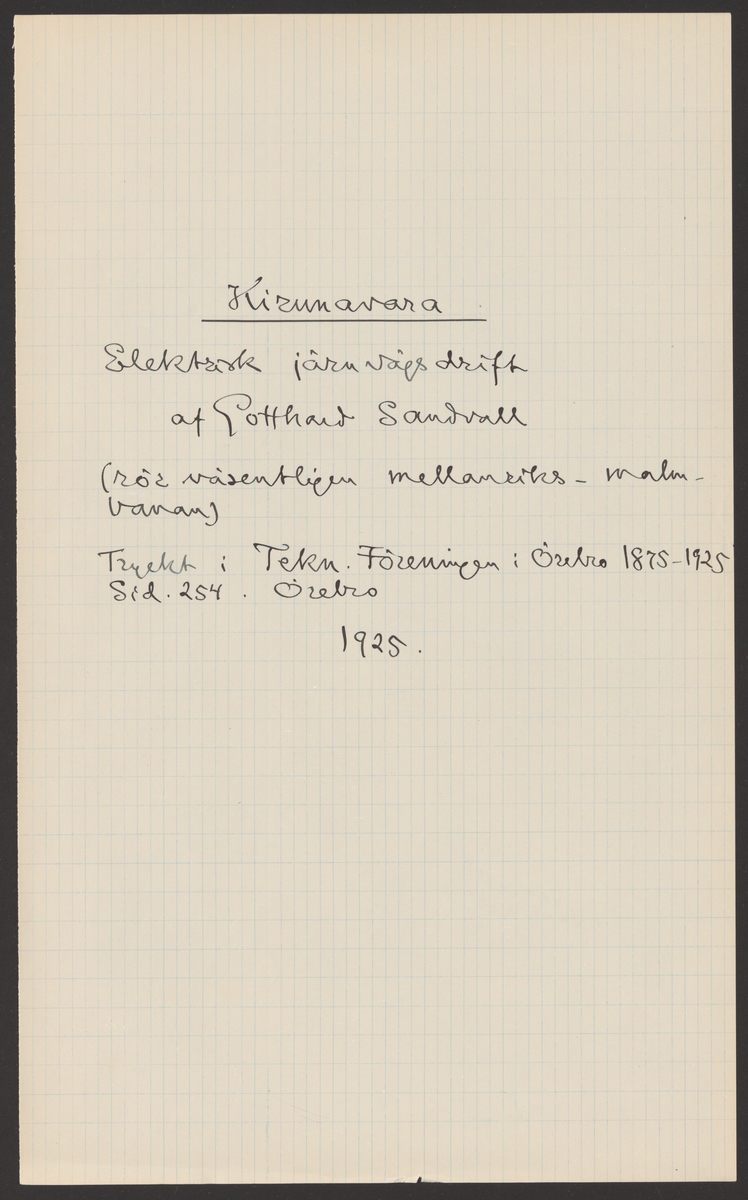 Kirunavara
Elektrisk järnvägsdrift
af Gotthard Sandvall
(rör väsentligen mellanriks- malm-
banan)
Tryckt i Tekn. Föreningen i Örebro 1875-1925
Sid. 254. Örebro
1925.